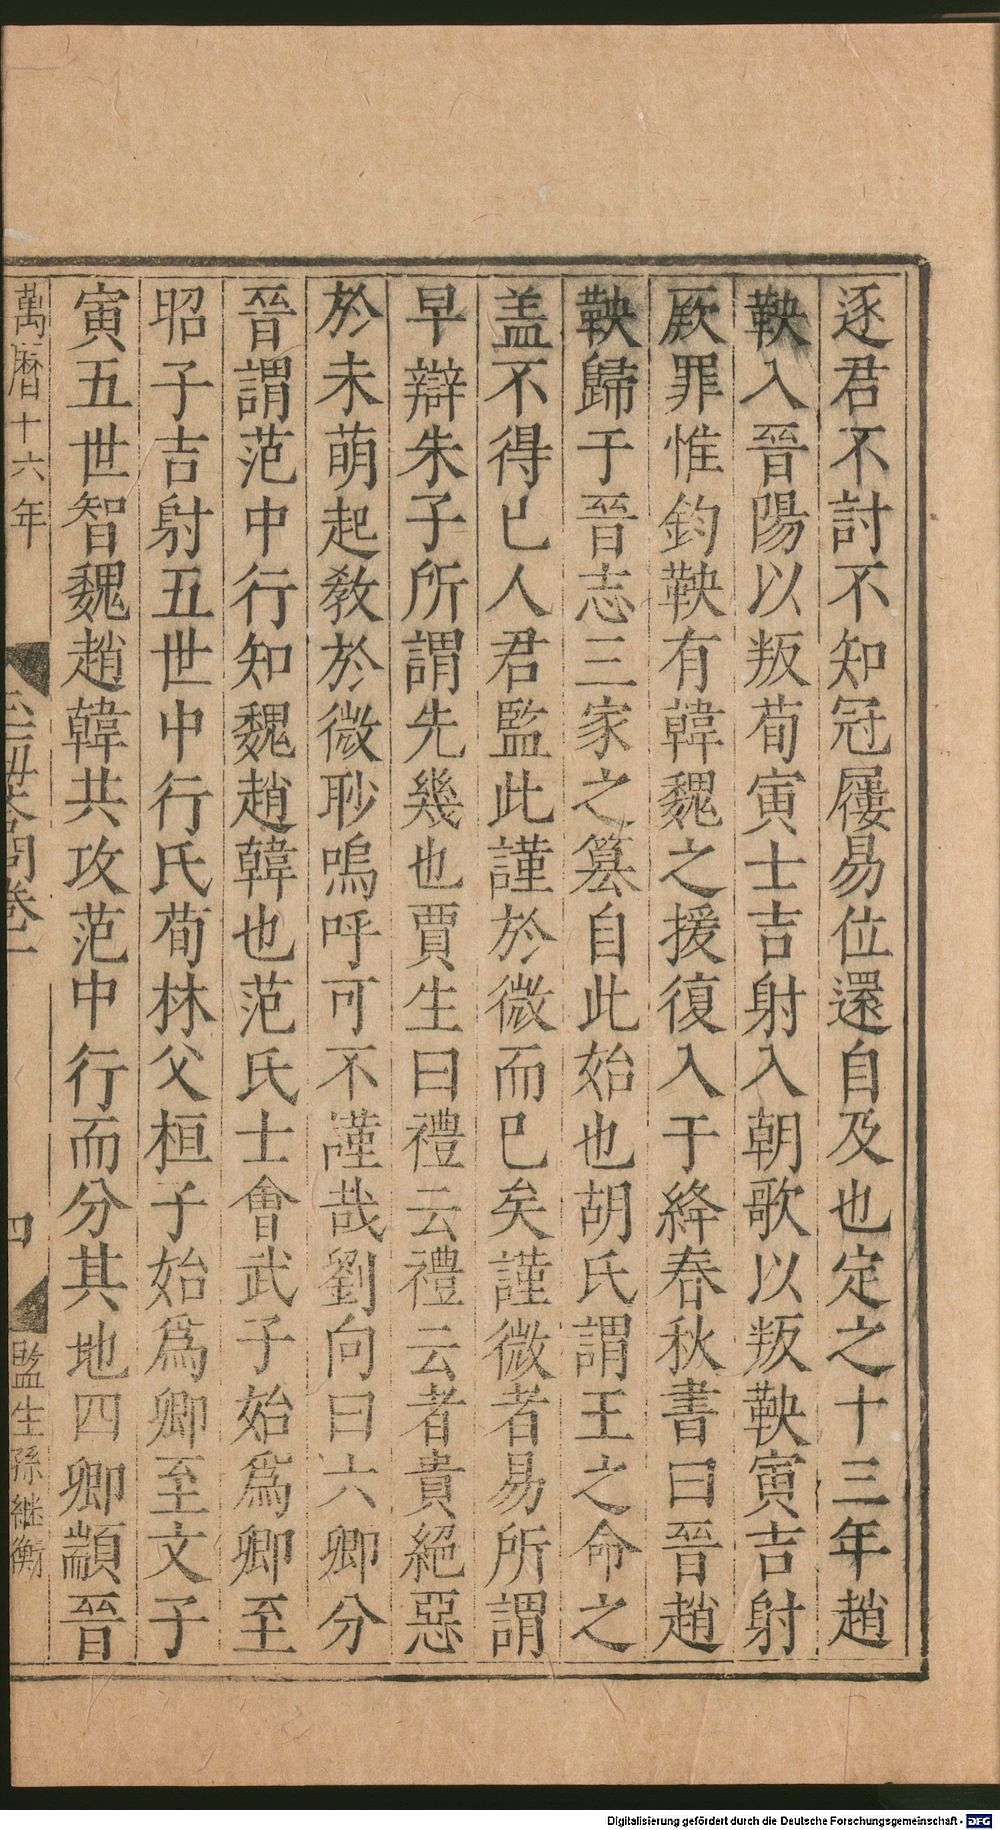 逐君不討不知冠屨易位還自及也定之十三年趙
鞅入晉陽以叛荀寅士吉射入朝歌以叛鞅寅吉射
厥罪惟鈞鞅有韓魏之援復入于絳春秋書曰晉趙
鞅歸于晉志三家之簒自此始也胡氏謂王之命之
盖不得已人君監此謹於微而已矣謹微者易所謂
早辯朱子所謂先幾也賈生曰禮云禮云者貴絕惡
於未萌起敎於微眇嗚呼可不謹哉劉向曰六卿分
晉謂范中行知魏趙韓也范氏士會武子始爲卿至
昭子吉射五世中行氏荀林父桓子始爲卿至文子
寅五世智魏趙韓共攻范中行而分其地四卿顓晉
萬曆十六年
卷一
四
監生孫継衡
Digitalisierung gefördert durch die Deutsche Forschungsgemeinschaft - DFG